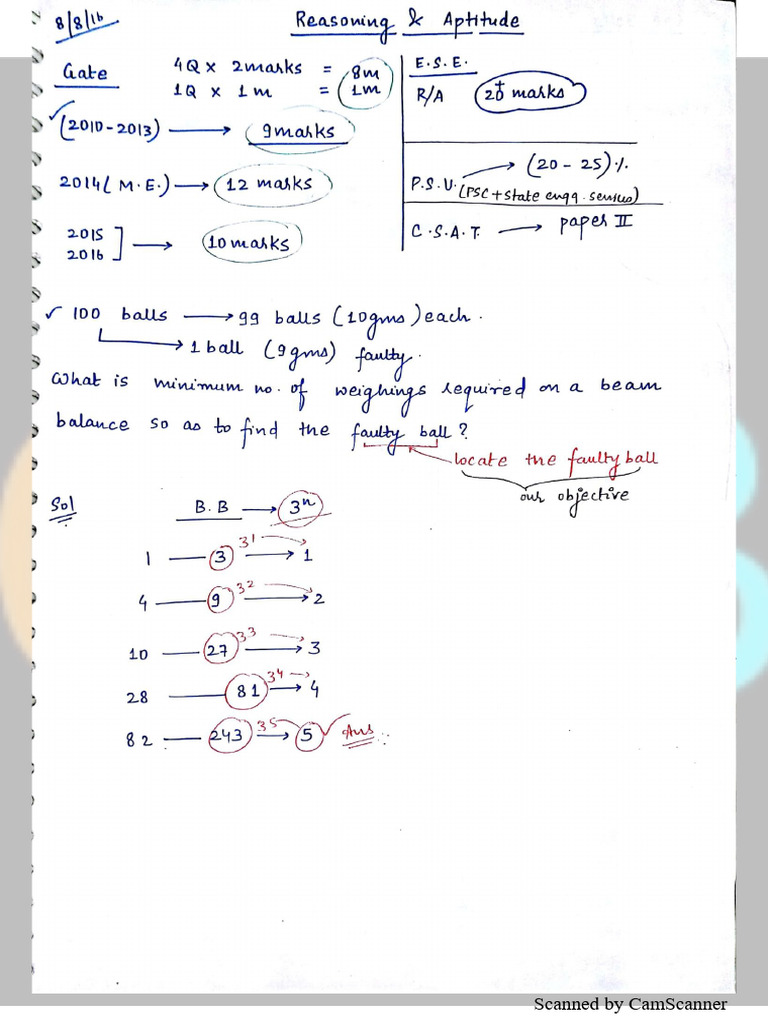 8/8/16
Reasoning & Aptitude
Gate 4Q x 2marks = 8m
1Q x 1m = 1m
(2010-2013) → 9marks
2014 (M.E.) → 12 marks
2015
2016 ] → 10 marks
E.S.E.
R/A 20+ marks
P.S.U. → (20-25)%
(PSC+State engg. services)
C.S.A.T. → paper II
✓ 100 balls → 99 balls (10gms) each.
→ 1 ball (9gms) faulty.
What is minimum no. of weighings required on a beam
balance so as to find the faulty ball?
locate the faulty ball
our objective
Sol B.B → 3ⁿ
1 — 3 3¹ → 1
4 — 9 3² → 2
10 — 27 3³ → 3
28 — 81 3⁴ → 4
82 — 243 3⁵ → 5 ✓ Ans
Scanned by CamScanner